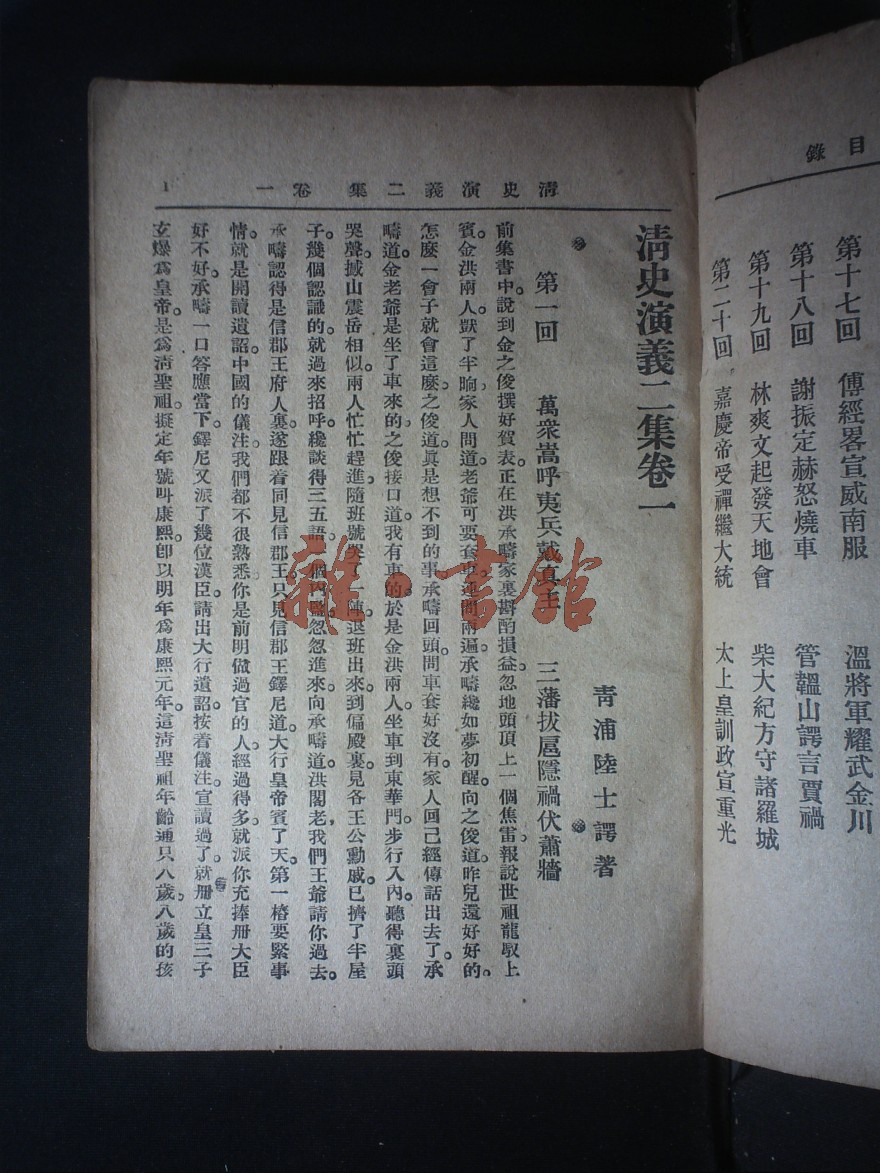 目錄
第十七回　傅經畧宣威南服　溫將軍耀武金川
第十八回　謝振定赫怒燒車　管韞山諤言賈禍
第十九回　林爽文起發天地會　柴大紀方守諸羅城
第二十回　嘉慶帝受禪繼大統　太上皇訓政宣重光
清史演義二集　卷一　1
清史演義二集卷一
青浦陸士諤著
第一回　萬衆嵩呼夷兵戴真主　三藩拔扈隱禍伏蕭牆
前集書中。說到金之俊撰好賀表。正在洪承疇家裏斟酌損益。忽地頭頂上一個焦雷。報說世祖龍馭上
賓。金洪兩人獃了半晌。家人問道。老爺可要套車。連問兩遍。承疇纔如夢初醒。向之俊道。昨兒還好好的。
怎麼一會子就會這麼。之俊道。眞是想不到的事。承疇回頭問車套好沒有。家人回已經傳話出去了。承
疇道。金老爺是坐了車來的。之俊接口道。我有車的。於是金洪兩人坐車到東華門。步行入內。聽得裏頭
哭聲。撼山震岳相似。兩人忙忙趕進。隨班號哭了一陣。退班出來。到偏殿裏。見各王公勳戚。已擠了半屋
子。幾個認識的。就過來招呼。纔談得三五語。一個內監忽忽進來。向承疇道。洪閣老。我們王爺請你過去。
承疇認得是信郡王府人裏。遂跟着同見信郡王。只見信郡王鐸尼道。大行皇帝賓了天。第一樁要緊事
情。就是開讀遺詔。中國的儀注。我們都不很熟悉。你是前明做過官的人。經過得多。就派你充捧册大臣
好不好。承疇一口答應。當下。鐸尼又派了幾位漢臣。請出大行遺詔。按着儀注。宣讀過了。就册立皇三子
玄爆爲皇帝。是爲清聖祖。擬定年號叫康熙。卽以明年爲康熙元年。這清聖祖年齡通只八歲。八歲的孩
雜·書館